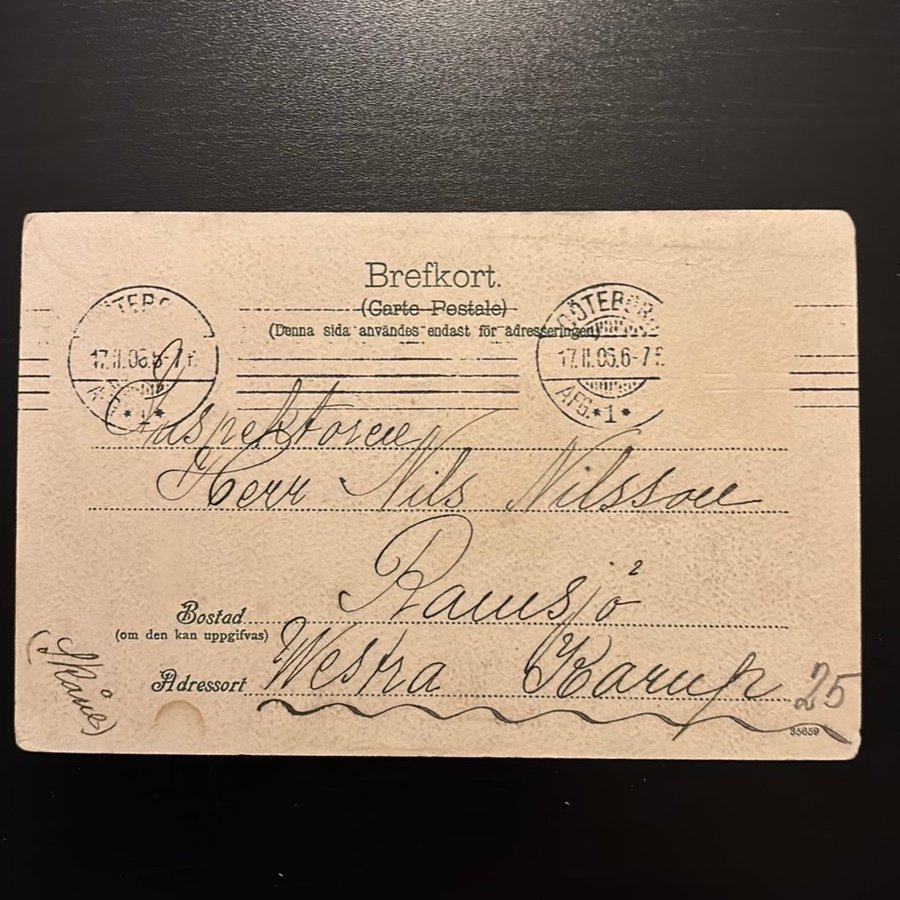 Brefkort.
(Carte Postale)
(Denna sida användes endast för adresseringen)
GÖTEBORG
17.11.06.6-7 F.
AFG.*1*
GÖTEBORG
17.11.06.6-7 F.
AFG.*1*
Inspektoren
Herr Nils Nilsson
Ramsjö
Bostad
(om den kan uppgifvas)
Adressort
Westra Karup
(Skåne)
25
35659